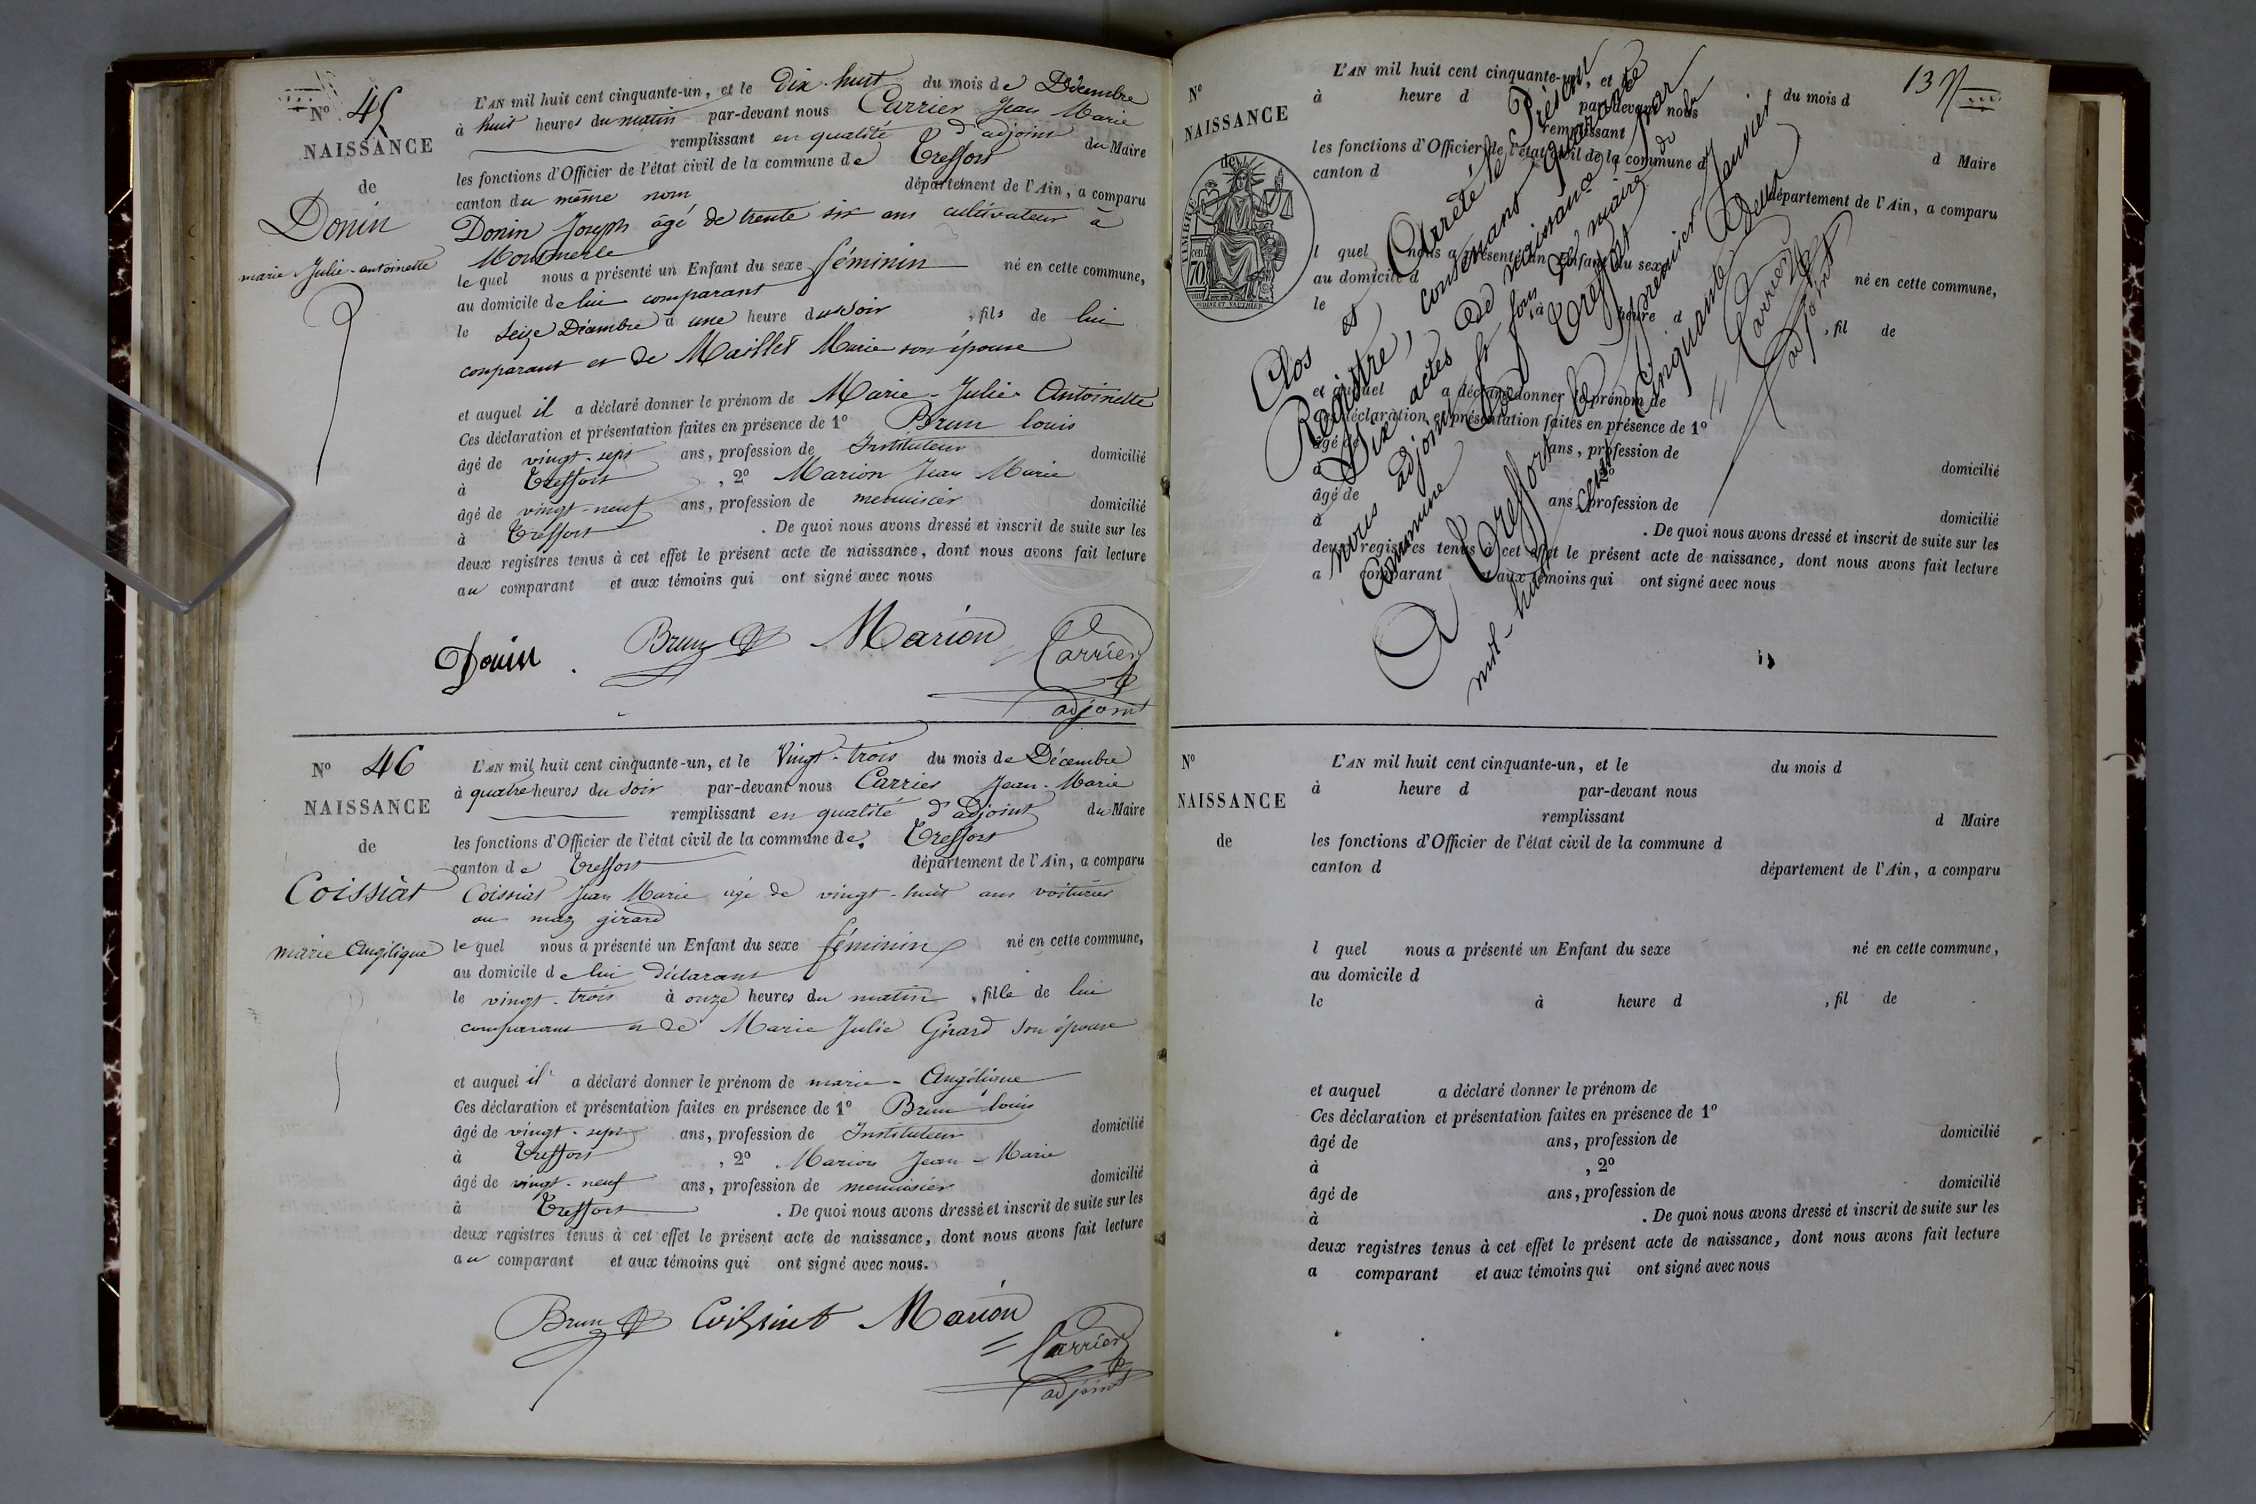 N° 45
NAISSANCE
de
Donin
marie Julie-antoinette
L'AN mil huit cent cinquante-un, et le Dix-huit du mois de Décembre
à huit heures du matin par-devant nous Carrier Jean Marie
remplissant en qualité d'adjoint du Maire
les fonctions d'Officier de l'état civil de la commune de Treffort
canton du même nom département de l'Ain, a comparu
Donin Joseph âgé de trente six ans cultivateur à
Montmerle
le quel nous a présenté un Enfant du sexe féminin né en cette commune,
au domicile de lui comparant
le seize Décembre à une heure du soir, fils de lui
comparant et de Maillet Marie son épouse
et auquel il a déclaré donner le prénom de Marie-Julie-Antoinette
Ces déclaration et présentation faites en présence de 1° Brun louis
âgé de vingt-sept ans, profession de Instituteur domicilié
à Treffort, 2° Marion Jean Marie
âgé de vingt-neuf ans, profession de menuisier domicilié
à Treffort. De quoi nous avons dressé et inscrit de suite sur les
deux registres tenus à cet effet le présent acte de naissance, dont nous avons fait lecture
au comparant et aux témoins qui ont signé avec nous
Donin Brun Marion Carrier
adjoint
N° 46
NAISSANCE
de
Coissiat
marie Angélique
L'AN mil huit cent cinquante-un, et le Vingt-trois du mois de Décembre
à quatre heures du soir par-devant nous Carrier Jean-Marie
remplissant en qualité d'adjoint du Maire
les fonctions d'Officier de l'état civil de la commune de Treffort
canton de Treffort département de l'Ain, a comparu
Coissiat Jean Marie âgé de vingt-huit ans voiturier
au maz girard
le quel nous a présenté un Enfant du sexe féminin né en cette commune,
au domicile de lui déclarant
le vingt-trois à onze heures du matin, fille de lui
comparant et de Marie Julie Girard son épouse
et auquel il a déclaré donner le prénom de marie-Angélique
Ces déclaration et présentation faites en présence de 1° Brun louis
âgé de vingt-sept ans, profession de Instituteur domicilié
à Treffort, 2° Marion Jean-Marie
âgé de vingt-neuf ans, profession de menuisier domicilié
à Treffort. De quoi nous avons dressé et inscrit de suite sur les
deux registres tenus à cet effet le présent acte de naissance, dont nous avons fait lecture
au comparant et aux témoins qui ont signé avec nous.
Brun Coissiat Marion
Carrier
adjoint
137
N°
NAISSANCE
de
TIMBRE
70
L'AN mil huit cent cinquante-un, et le du mois d
à heure d par-devant nous
remplissant d Maire
les fonctions d'Officier de l'état civil de la commune d
canton d département de l'Ain, a comparu
l quel nous a présenté un Enfant du sexe né en cette commune,
au domicile d
le à heure d, fil de
et auquel a déclaré donner le prénom de
Ces déclaration et présentation faites en présence de 1°
âgé de ans, profession de domicilié
à
âgé de ans, profession de domicilié
à. De quoi nous avons dressé et inscrit de suite sur les
deux registres tenus à cet effet le présent acte de naissance, dont nous avons fait lecture
a comparant et aux témoins qui ont signé avec nous
Clos et Arrêté le Présent
Registre, contenant quarante
Six actes de naissance par
nous adjoint f. fons de maire de
Commune de Treffort
A Treffort le premier Janvier
mil-huit cent Cinquante Deux
Carrier
adjoint
N°
NAISSANCE
de
L'AN mil huit cent cinquante-un, et le du mois d
à heure d par-devant nous
remplissant d Maire
les fonctions d'Officier de l'état civil de la commune d
canton d département de l'Ain, a comparu
l quel nous a présenté un Enfant du sexe né en cette commune,
au domicile d
le à heure d, fil de
et auquel a déclaré donner le prénom de
Ces déclaration et présentation faites en présence de 1°
âgé de ans, profession de domicilié
à, 2°
âgé de ans, profession de domicilié
à. De quoi nous avons dressé et inscrit de suite sur les
deux registres tenus à cet effet le présent acte de naissance, dont nous avons fait lecture
a comparant et aux témoins qui ont signé avec nous